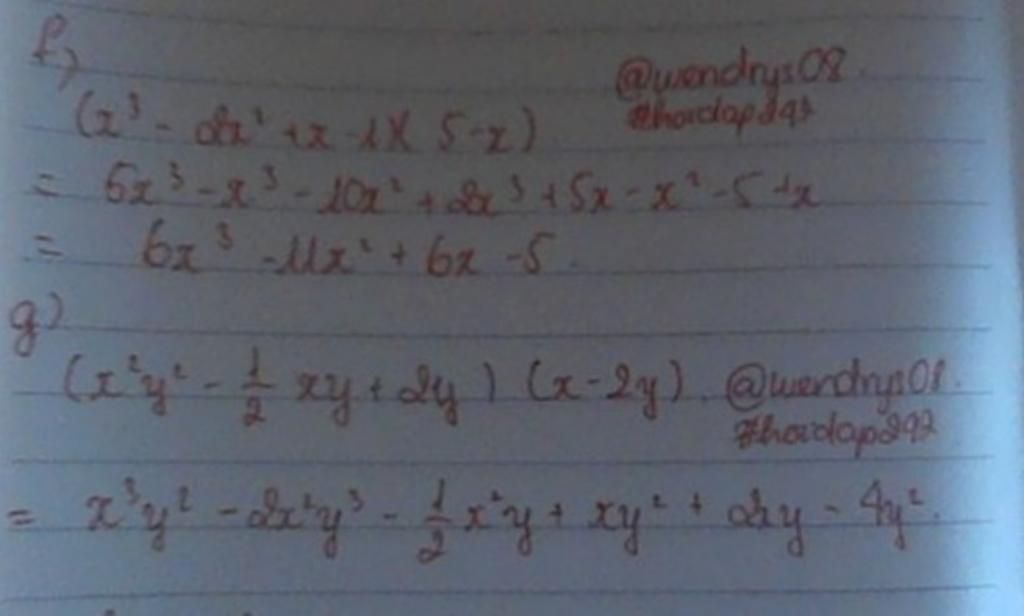 f)
@wendrys08.
(x³ - 2x² + x - 1)(5 - x)
#hoidap247
= 5x³ - x³ - 10x² + 2x³ + 5x - x² - 5 + x
= 6x³ - 11x² + 6x - 5.
g)
(x²y² - 1/2 xy + 2y) (x - 2y). @wendrys08.
#hoidap247
= x³y² - 2x²y³ - 1/2 x²y + xy² + 2xy - 4y².